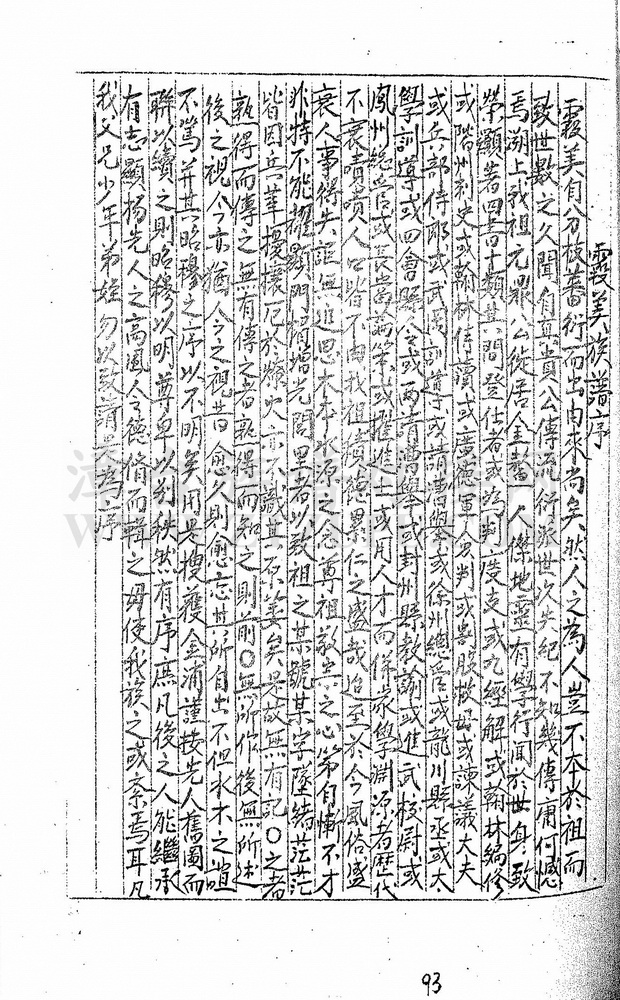 霞美族譜序
霞美自分枝蕃衍而出由來尚矣然人之為人豈不本於祖而
致世數之久聞自真貴公傳流衍派世次失紀不知幾傳庸何憾
焉溯上我祖元鼎公徙居金鰲人傑地靈有學行聞於世真致
榮顯著四書十類其間登仕者或為判度支或九經解或翰林編修
或階州刺史或翰林侍讀或廣德軍僉判或割股救母或諫議大夫
或兵部侍郎或武岡訓導或請漕舉或徐州總管或龍川縣丞或太
學訓導或四會縣令或兩請漕舉或封州縣教諭或進武校尉或
鳳州總管或長當論策或擢進士或用人才而保家學淵源者歷代
不衰嘖嘖人口皆不由我祖積德累仁之盛哉迨至於今風俗盛
衰人事得失詎無追思木本水源之念尊祖敬宗之心第自慚不才
非特不能耀顯門楣增光閭里者以致祖之某號某字墜緒茫茫
皆因兵革擾攘厄於燎火亦不識其名姜矣是故無有記〇之者
孰得而傳之無有傳之者孰得而知之則前〇無所作後無所述
後之視今亦猶今之視昔愈久則愈忘其所自出不但水木之道
不篤并其昭穆之序以不明矣用是搜獲金浦謹接先人舊圖而
聯以續之則昭穆以明尊卑以別秩然有序庶凡後之人能繼承
有志顯揚先人之高風令德脩而輯之毋使我族之或紊焉耳凡
我父兄少年弟姪勿以致誚是為序
93